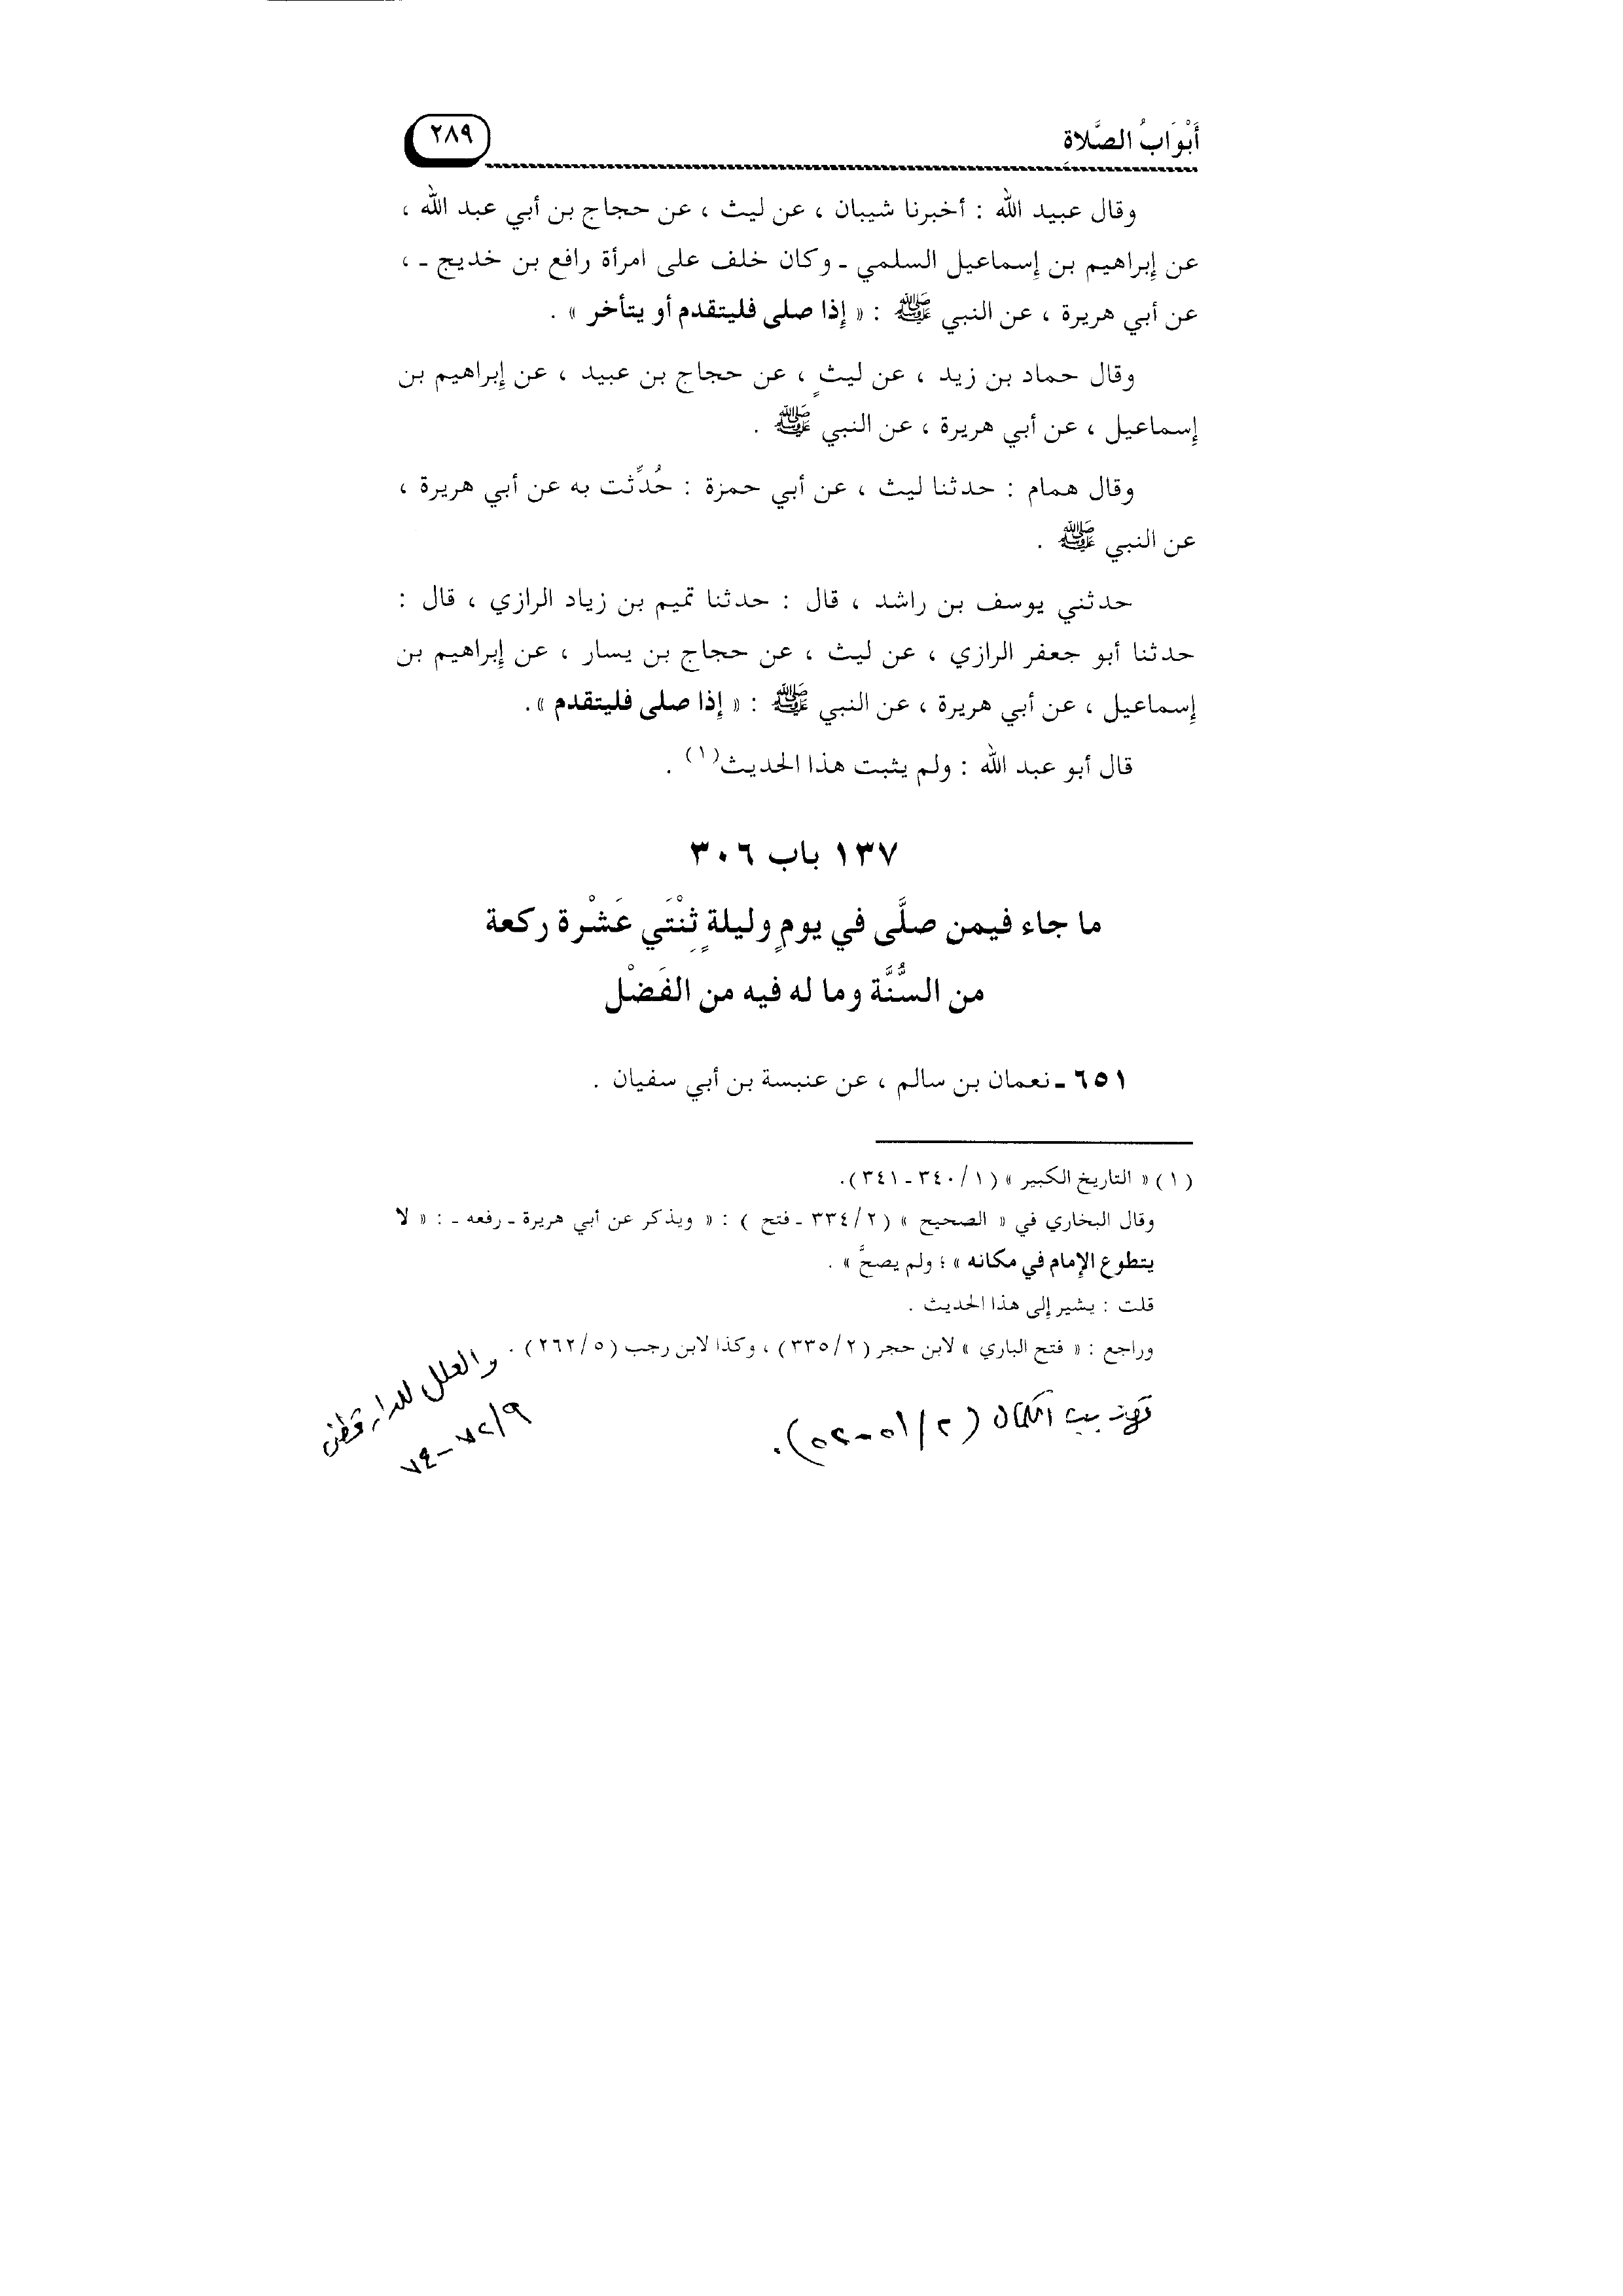 أَبْوَابُ الصَّلاةِ
٢٨٩
وقال عبيد الله : أخبرنا شيبان ، عن ليث ، عن حجاج بن أبي عبد الله ،
عن إبراهيم بن إسماعيل السلمي ـ وكان خلف على امرأة رافع بن خديج ـ ،
عن أبي هريرة ، عن النبي ﷺ : « إذا صلى فليتقدم أو يتأخر » .
وقال حماد بن زيد ، عن ليثٍ ، عن حجاج بن عبيد ، عن إبراهيم بن
إسماعيل ، عن أبي هريرة ، عن النبي ﷺ .
وقال همام : حدثنا ليث ، عن أبي حمزة : حُدِّثت به عن أبي هريرة ،
عن النبي ﷺ .
حدثني يوسف بن راشد ، قال : حدثنا تميم بن زياد الرازي ، قال :
حدثنا أبو جعفر الرازي ، عن ليث ، عن حجاج بن يسار ، عن إبراهيم بن
إسماعيل ، عن أبي هريرة ، عن النبي ﷺ : « إذا صلى فليتقدم ».
قال أبو عبد الله : ولم يثبت هذا الحديث(١) .
١٣٧ باب ٣٠٦
ما جاء فيمن صلَّى في يومٍ وليلةٍ ثِنْتَي عَشْرة ركعة
من السُّنَّة وما له فيه من الفَضْل
٦٥١ ـ نعمان بن سالم ، عن عنبسة بن أبي سفيان .
(١) « التاريخ الكبير » (١/ ٣٤٠ ـ ٣٤١).
وقال البخاري في « الصحيح » (٢/ ٣٣٤ ـ فتح ) : « ويذكر عن أبي هريرة ـ رفعه ـ : « لا
يتطوع الإمام في مكانه » ؛ ولم يصحَّ » .
قلت : يشير إلى هذا الحديث .
وراجع : « فتح الباري » لابن حجر (٢/ ٣٣٥) ، وكذا لابن رجب (٥/ ٢٦٢) .
والعلل للدارقطني
٩/٧٢ - ٧٤
تهذيب الكمال (٢/ ٥١ - ٥٢).